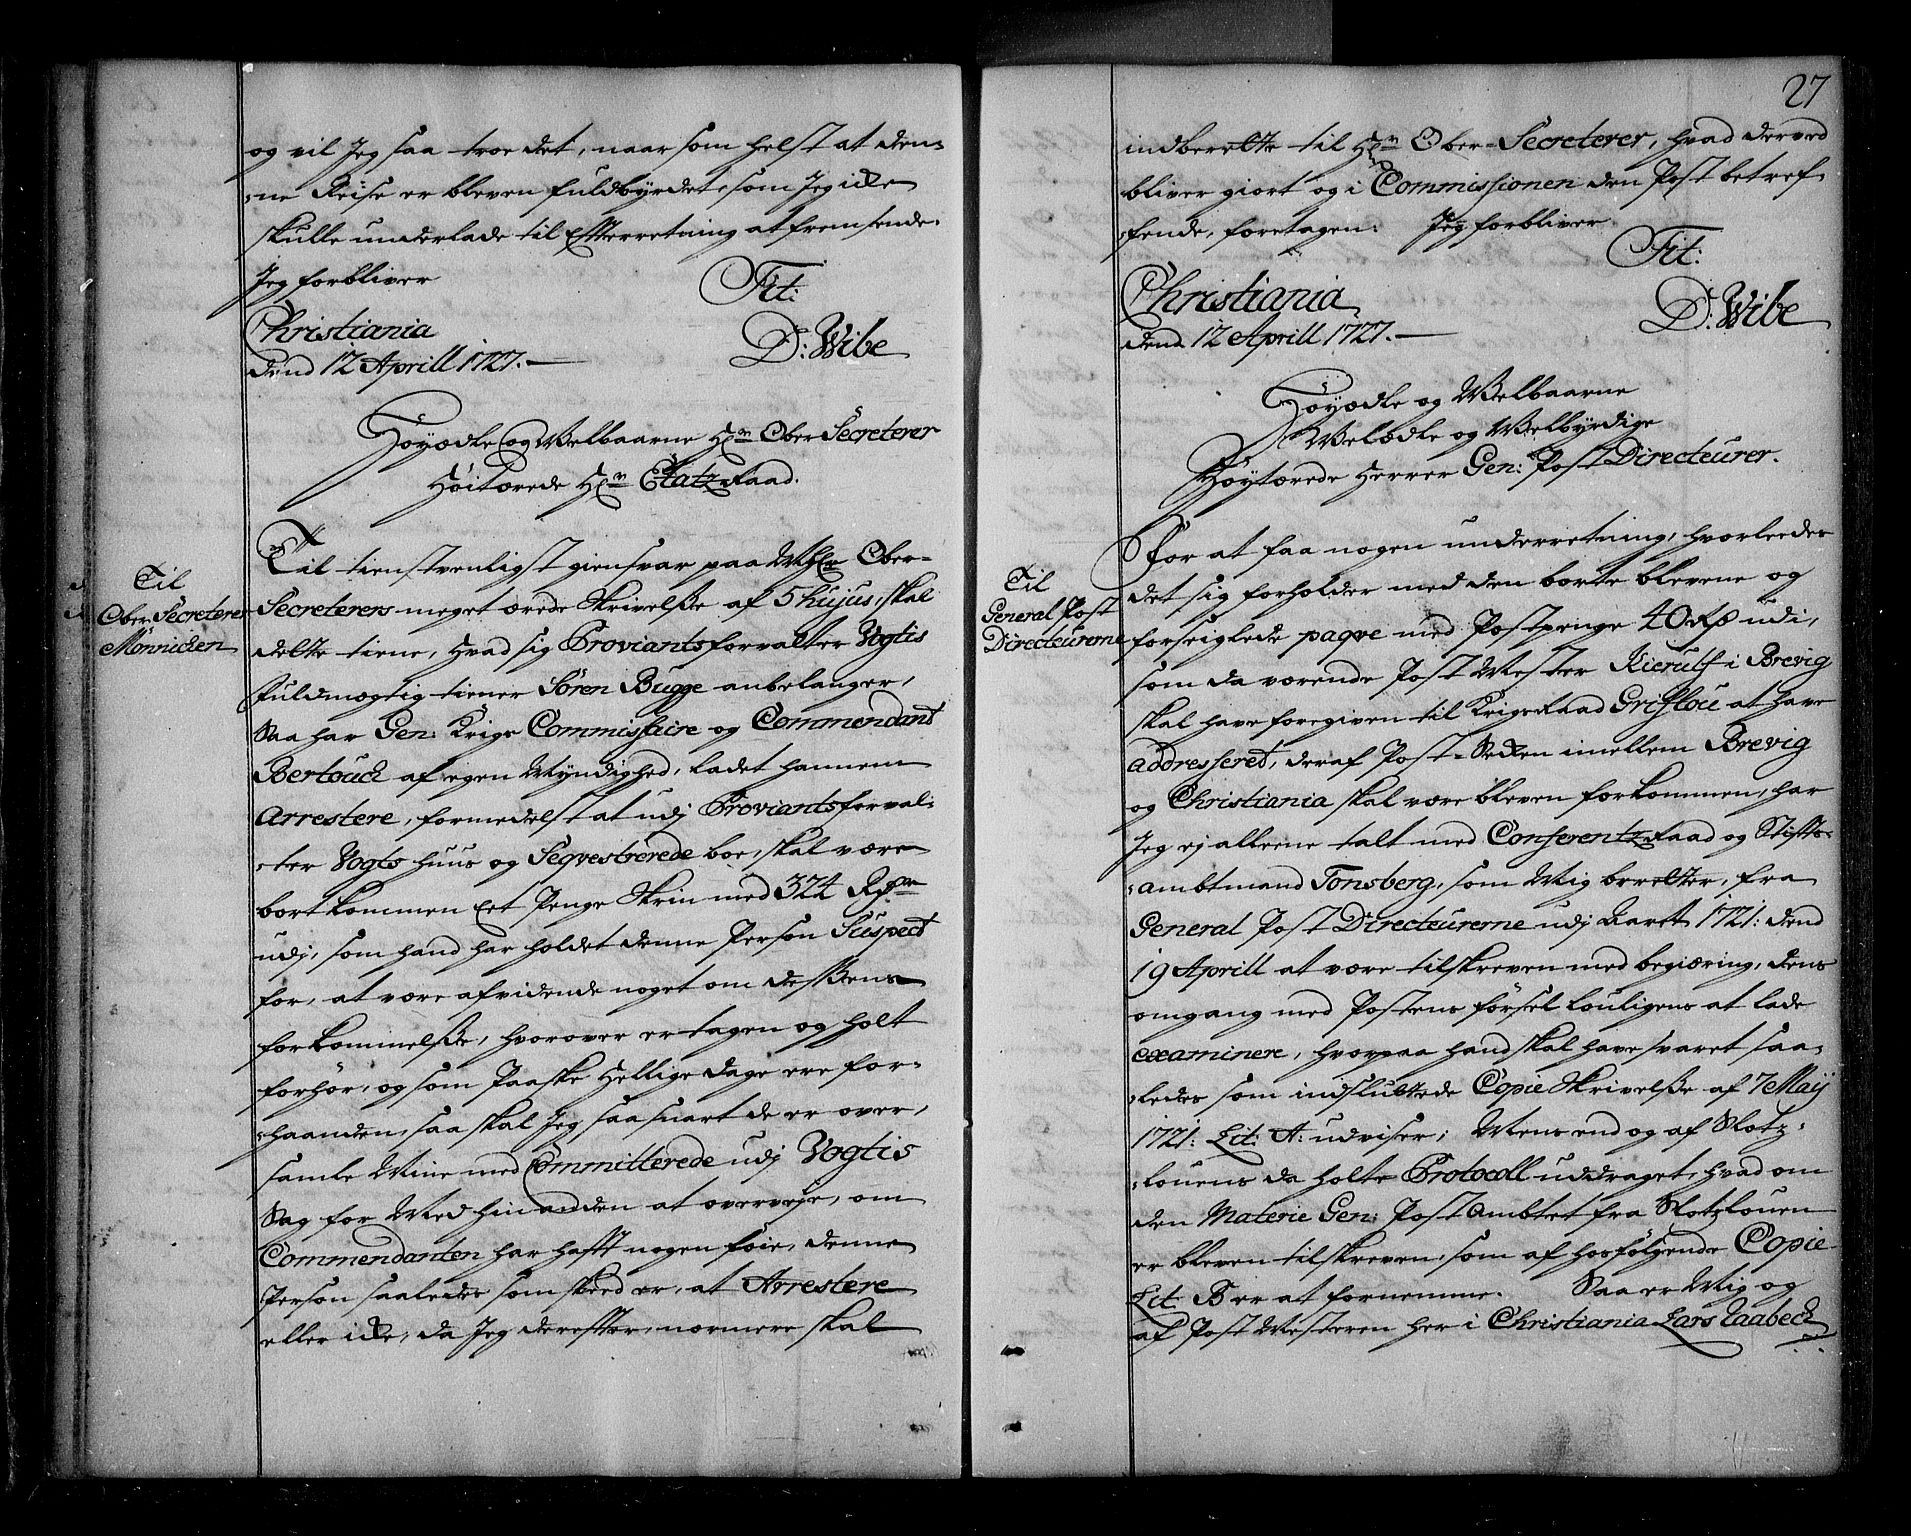 og vil Jeg saa troe det, naar som helst at den-
ne Reise er bleven fuldbyrdet, som Jeg icke
skulle underlade til Efterretning at fremsende.
Jeg forbliver
Tit:
Christiania
dend 12 Aprill 1727.
D: Wibe
Høyædle og Welbaarne Hr Ober Secreterer
Høitærede Hr Etatz Raad.
Til
Ober Secreterer
Mønnichen
Til tienstvenligst giensvar paa Mhr Ober-
Secreterers meget ærede Skrivelße af 5 hujus, skal
dette tiene, Hvad sig Proviantsforvalter Vogtis
fuldmægtig tiener Søren Bugge anbelanger,
Saa har Gen: Krigs Commissaire og Commendant
Bertouch af egen Myndighed, ladet hannem
Arrestere, formedelst at udj Proviantsforval-
ter Vogts huus og Seqvestrerede boe, skal være
bortkommen Eet Penge Skrin med 324 Rdr
udj, som hand har holdet denne Person Suspect
for, at være afvidende noget om desßens
forkommelße, hvorover er tagen og holt
forhør, og som Paaske Hellige dage ere for-
haanden, saa skal Jeg saa snart de er over,
samle Mine med Committerede udj Vogtis
Sag for Med hinanden at overveje, om
Commendanten har hafft nogen føie, denne
Person saaledes som skeed er, at Arrestere
eller icke, da Jeg derefter nærmere skal
27
indberette til Hr Ober-Secreterer, hvad derved
bliver giort og i Commissionen den Post betref-
fende, foretagen. Jeg forbliver
Tit:
Christiania
dend 12 Aprill 1727.
D: Wibe
Høyædle og Welbaarne
Welædle og Welbyrdige
Høytærede Herrer Gen: Post Directeurer.
Til
General Post
Directeurerne
For at faa nogen underretning, hvorleedes
det sig forholder med den borte blevene og
forseiglede paqve med Postpenge 40 Rd udi,
som da værende Post Mester Kierulf i Brevig
skal have foregiven til Krigs Raad Griflou at have
addresseret, deraf Post-Secken imellem Brevig
og Christiania skal være bleven forkommen, har
Jeg ej alleene talt med Conferentz Raad og Stifts-
ambtmand Tonsberg, som Mig beretter, fra
General Post Directeurerne udj Aaret 1721: dend
19 Aprill at være tilskreven med begiæring, dens
omgang med Postens førsel louligens at lade
examinere, hvorpaa hand skal have svaret saa-
ledes som indsluttede Copie Skrivelße af 7 Maij
1721: Lit: A: udviser; Mens end og af Slotz-
louens da holte Protocoll uddraget, hvad om
den Materie Gen: Post Ambtet fra Slotzlouen
er bleven tilskreven, som af hosfølgende Copie
Lit B er at fornemme. Saa er Mig og
af Post Mesteren her i Christiania Lars Vaabech